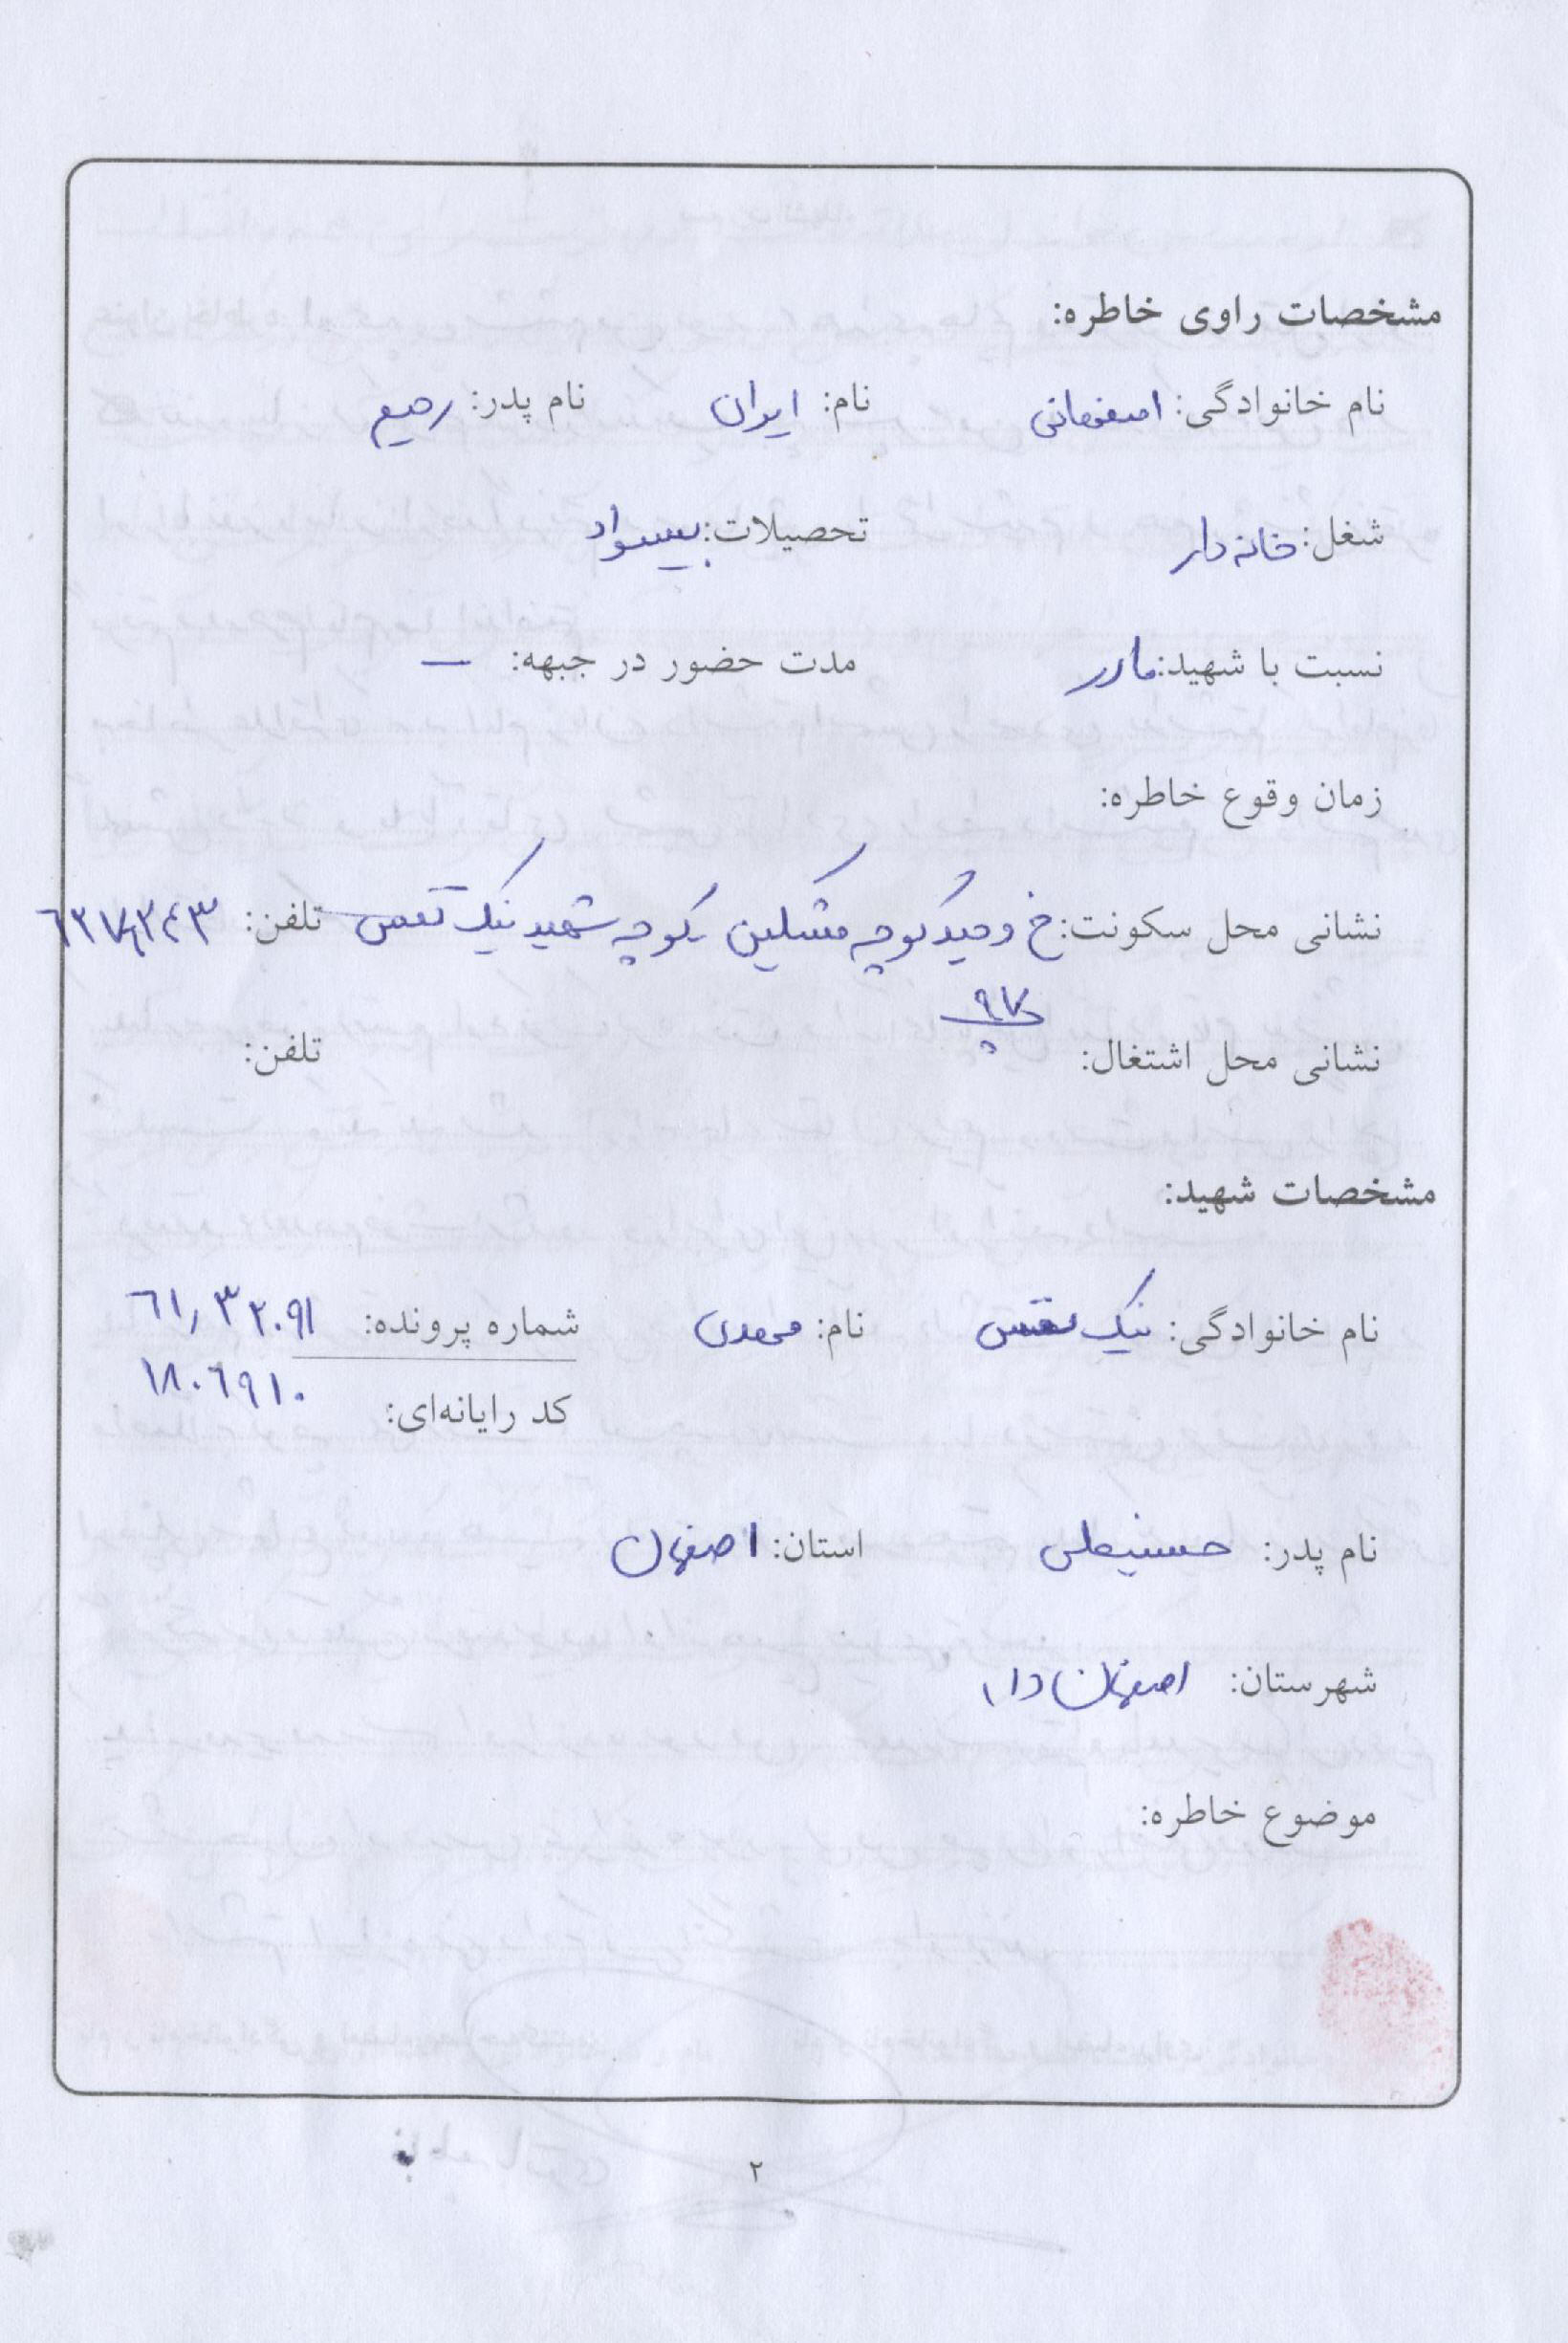 مشخصات راوی خاطره:
نام خانوادگی: اصفهانی نام: ایران نام پدر: رحیم
شغل: خانه دار تحصیلات: بیسواد
نسبت با شهید: مادر مدت حضور در جبهه: —
زمان وقوع خاطره:
نشانی محل سکونت: خ وحید کوچه مشکلین کوچه شهید نیک نفس تلفن:
پ ۹۷
نشانی محل اشتغال: تلفن:
مشخصات شهید:
نام خانوادگی: نیک نفس نام: مهدی شماره پرونده: ۶۱,۳۲۰۹۱
کد رایانه‌ای: ۱۸۰۶۹۱۰
نام پدر: حسینعلی استان: اصفهان
شهرستان: اصفهان
موضوع خاطره:
۲